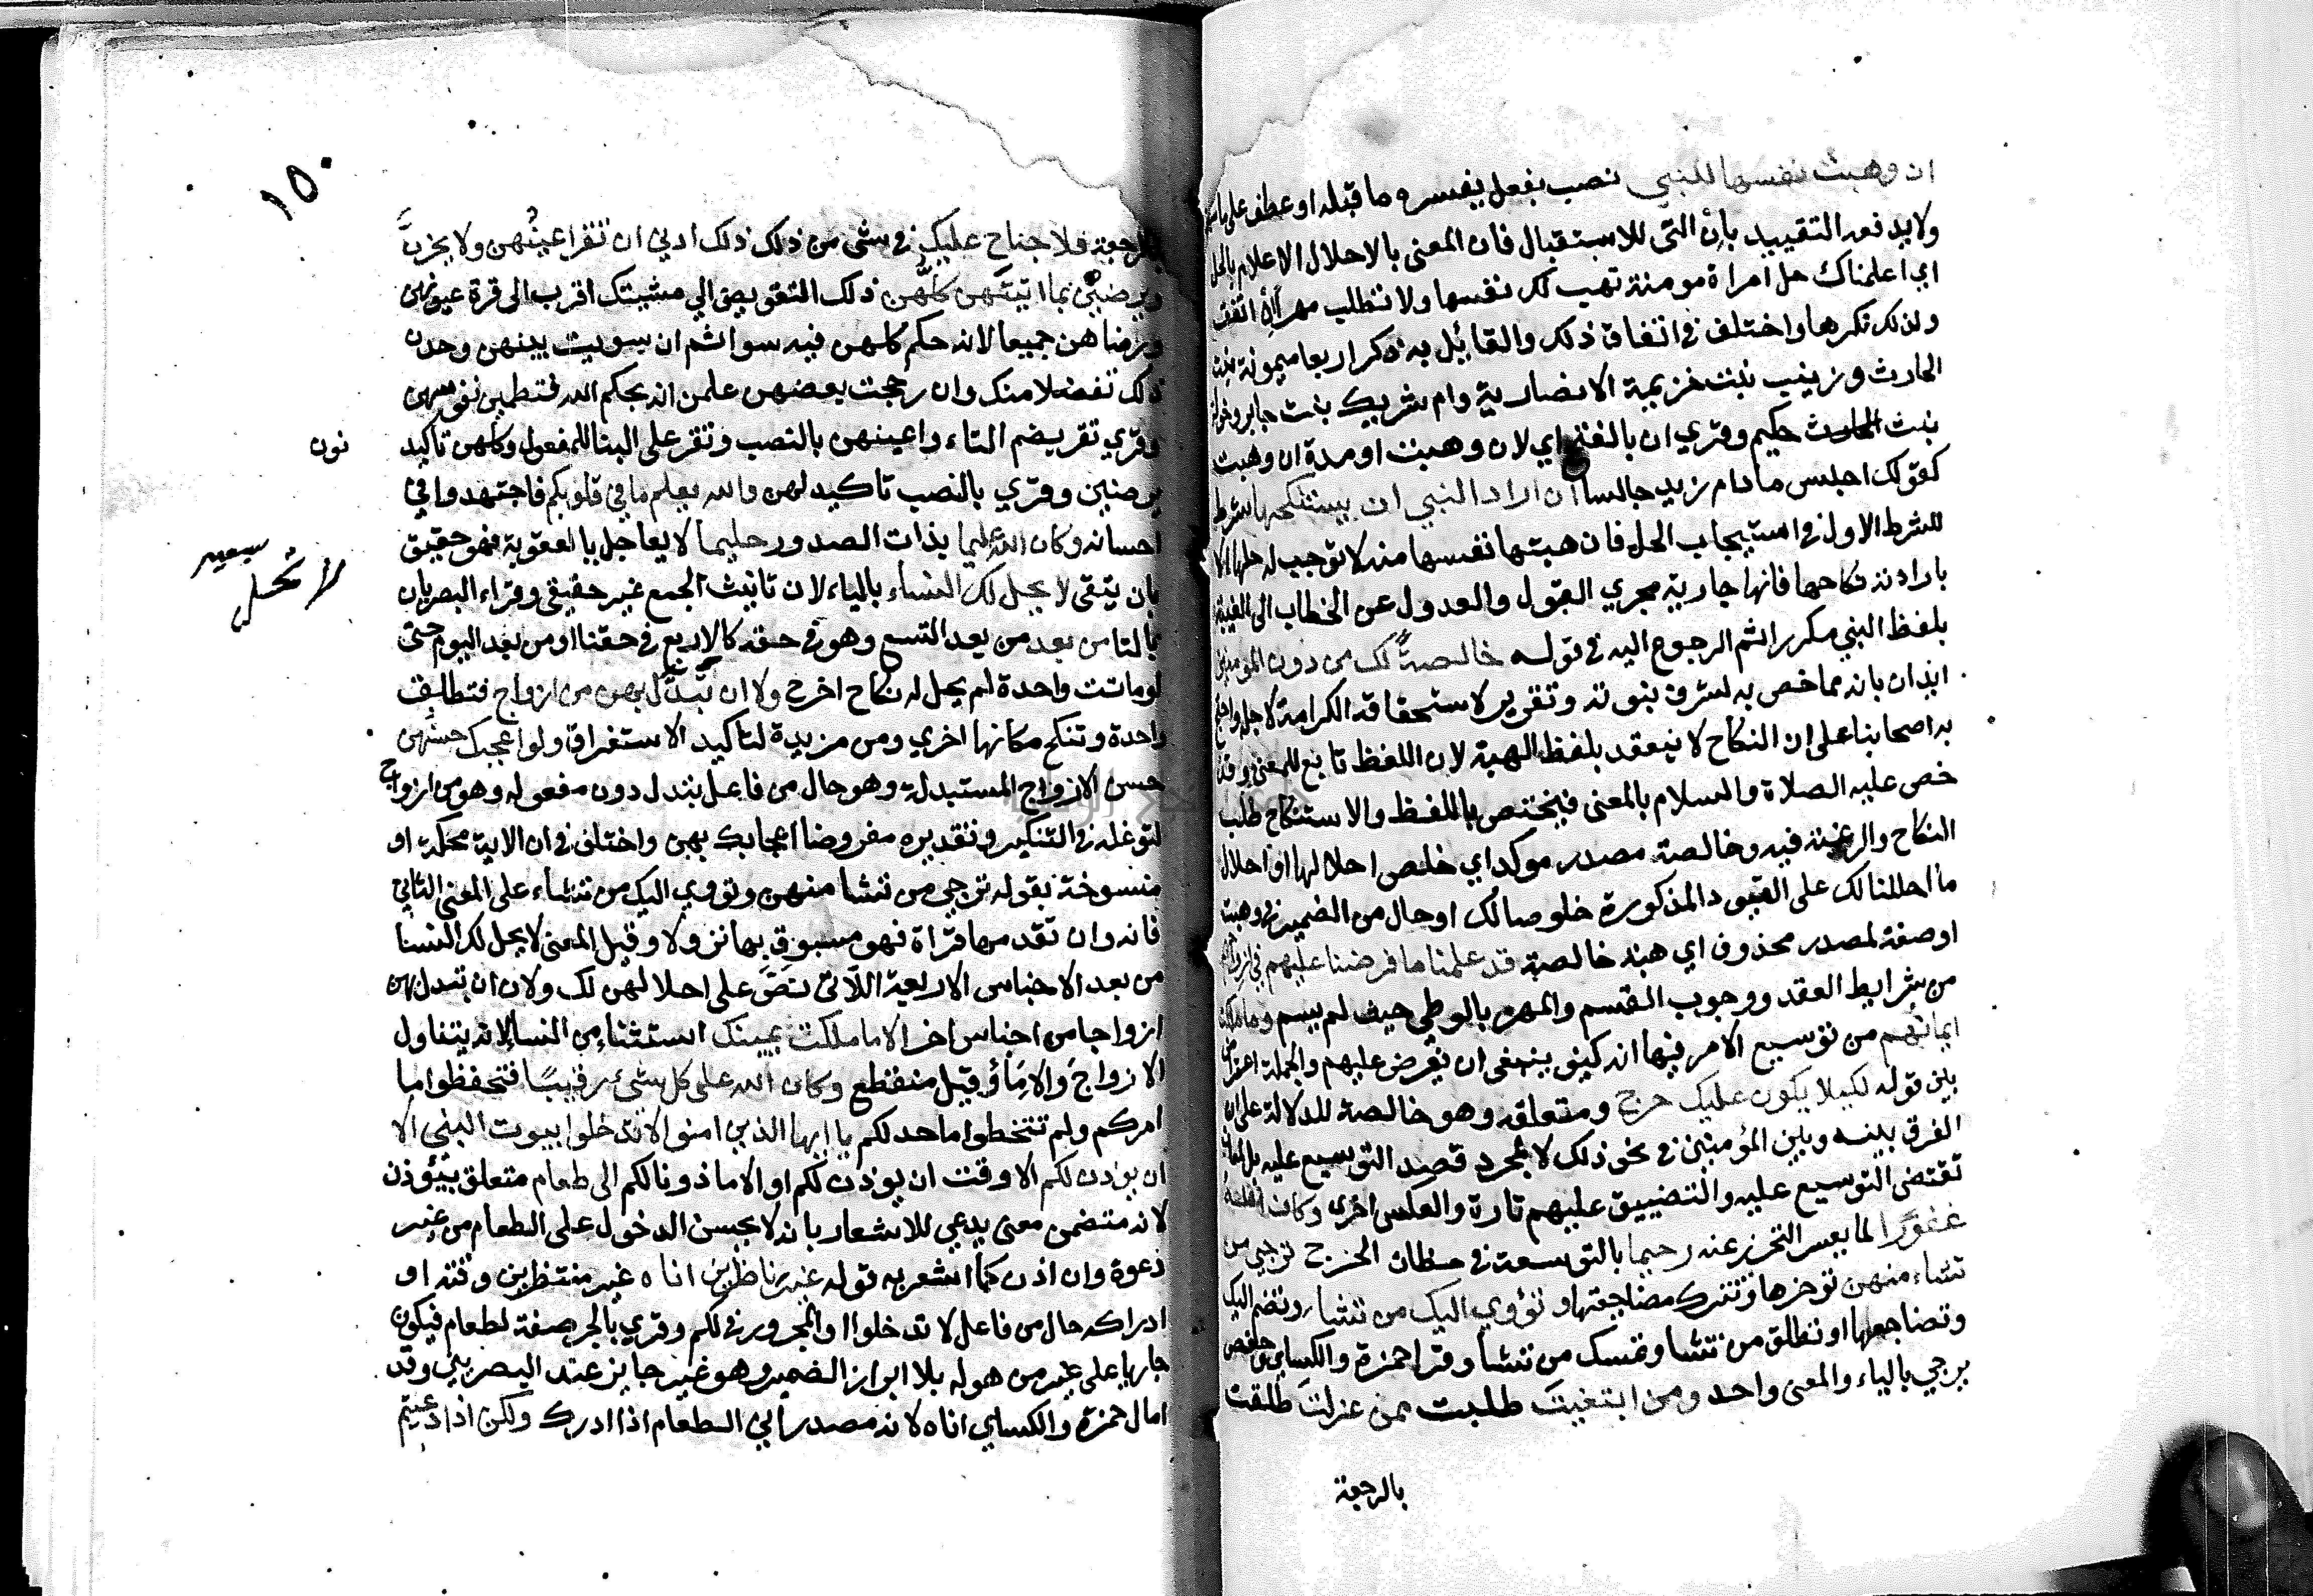 ان وهبت نفسها للنبي نصب بفعل يفسره ما قبله او عطف على ما سبق
ولا يدفعه التقييد بأن التى للاستقبال فان المعنى بالاحلال الاعلام بالحل
اي اعلمناك حل امراة مومنة تهب لك نفسها ولا تطلب مهرا ان اتفق
ولذلك نكرها واختلف فى اتفاق ذلك والقائل به ذكر اربعا ميمونة بنت
الحارث وزينب بنت خزيمة الانصارية وام شريك بنت جابر وخولة
بنت حكيم وقري ان بالفتح اي لان وهبت او مدة ان وهبت
كقولك اجلس مادام زيد جالسا ان اراد النبي ان يستنكحها شرط
للشرط الاول فى استيجاب الحل فان هبتها نفسها منه لا توجب له حلها الا
بارادته نكاحها فانها جارية مجري القبول والعدول عن الخطاب الى الغيبة
بلفظ النبي مكررا ثم الرجوع اليه فى قوله خالصة لك من دون المومنين
ايذان بانه مما خص به لشرف نبوته وتقرير لاستحقاقه الكرامة لاجله واحتج
به اصحابنا على ان النكاح لا ينعقد بلفظ الهبة لان اللفظ تابع للمعنى وقد
خص عليه الصلاة والسلام بالمعنى فيختص باللفظ والاستنكاح طلب
النكاح والرغبة فيه وخالصة مصدر موكد اي خلص احلالها او احلال
ما احللنا لك على القيود المذكورة خلوصا لك او حال من الضمير فى وهبت
او صفة لمصدر محذوف اي هبة خالصة قد علمنا ما فرضنا عليهم في ازواجهم
من شرايط العقد ووجوب القسم والمهر بالوطي حيث لم يسم وما ملكت
ايمانهم من توسيع الامر فيها انه كيف ينبغى ان يفرض عليهم والجملة اعتراض
بين قوله لكيلا يكون عليك حرج ومتعلقه وهو خالصة للدلالة على ان
الفرق بينه وبين المؤمنين فى نحو ذلك لا لمجرد قصد التوسيع عليه بل لمعان
تقتضى التوسيع عليه والتضييق عليهم تارة والعكس اخرى وكان الله
غفورا لما يعسر التحرز عنه رحيما بالتوسعة فى مظان الحرج ترجي من
تشاء منهن توخرها وتترك مضاجعتها وتؤوي اليك من تشاء وتضم اليك
وتضاجعها او تطلق من تشا وتمسك من تشا وقرا حمزة والكساي وحفص
يرجي بالياء والمعنى واحد ومن ابتغيت طلبت ممن عزلت طلقت
بالرجعة
١٥٠
بالرجعة فلا جناح عليك فى شى من ذلك ذلك ادنى ان تقر اعينهن ولا يحزن
ويرضين بما اتيتهن كلهن ذلك التفويض الي مشيتك اقرب الى قرة عيونهن
ورضاهن جميعا لانه حكم كلهن فيه سوا ثم ان سويت بينهن وجدن
ذلك تفضلا منك وان رجحت بعضهن علمن انه بحكم الله فتطمين نفوسهن
وقري تقر بضم التاء واعينهن بالنصب وتقر على البنا للمفعول وكلهن تاكيد
نون
يرضين وقري بالنصب تاكيد لهن والله يعلم ما في قلوبكم فاجتهدوا في
احسانه وكان الله عليما بذات الصدور حليما لا يعاجل بالعقوبة فهو حقيق
بان يتقى لا يحل لك النساء بالياء لان تانيث الجمع غير حقيقى وقراء البصريان
لا تحل
بالتا من بعد من بعد التسع وهو فى حقه كالاربع فى حقنا او من بعد اليوم حتى
لو ماتت واحدة لم يحل له نكاح اخرى ولا ان تبدل بهن من ازواج فتطلق
واحدة وتنكح مكانها اخري ومن مزيدة لتاكيد الاستغراق ولو اعجبك حسنهن
حسن الازواج المستبدلة وهو حال من فاعل تبدل دون مفعوله وهو من ازواج
لتوغله فى التنكير وتقديره مفروضا اعجابك بهن واختلف فى ان الاية محكمة او
منسوخة بقوله ترجي من تشا منهن وتووي اليك من تشاء على المعنى الثاني
فانه وان تقدمها قراة فهو مسبوق بها نزولا وقيل المعنى لا يحل لك النسا
من بعد الاجناس الاربعة اللاتى نص على احلالهن لك ولا ان تبدل بهن
ازواجا من اجناس اخر الا ما ملكت يمينك استثناء من النسا لانه يتناول
الازواج والاما وقيل منقطع وكان الله على كل شئ رقيبا فتحفظوا ما
امركم ولم تتخطوا ما حد لكم يا ايها الذين امنوا لا تدخلوا بيوت النبي الا
ان يوذن لكم الا وقت ان يوذن لكم او الا ماذونا لكم الى طعام متعلق بيؤذن
لانه متضمن معنى يدعي للاشعار بانه لا يحسن الدخول على الطعام من غير
دعوة وان اذن كما اشعر به قوله غير ناظرين اناه غير منتظرين وقته او
ادراكه حال من فاعل لا تدخلوا او المجرور فى لكم وقري بالجر صفة لطعام فيكون
جاريا على غير من هو له بلا ابراز الضمير وهو غير جايز عند البصريين وقد
امال حمزة والكساي اناه لانه مصدر اني الطعام اذا ادرك ولكن اذا دعيتم